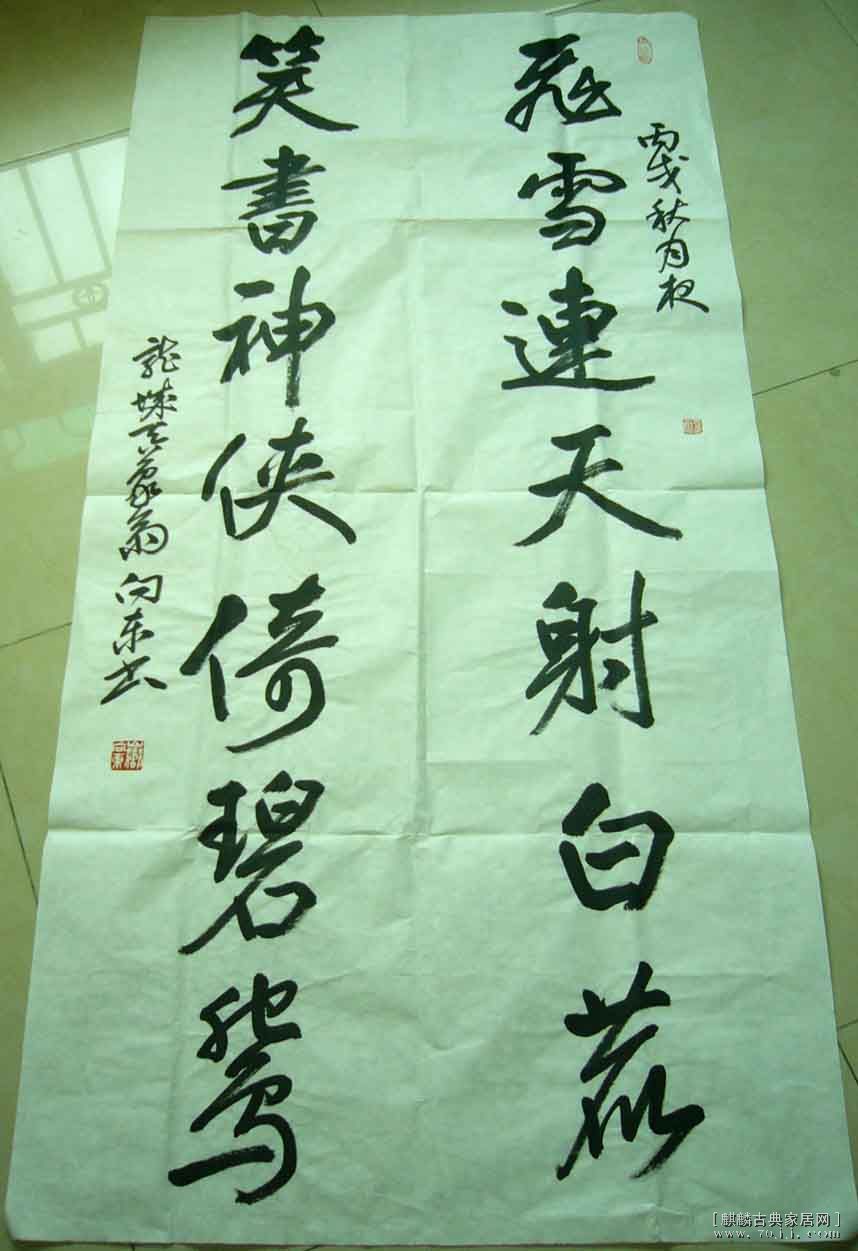 飛雪連天射白鹿
笑書神俠倚碧鴛
丙戌秋月
龍城翁向東书
[麒麟古典家居网]
www.70jj.com